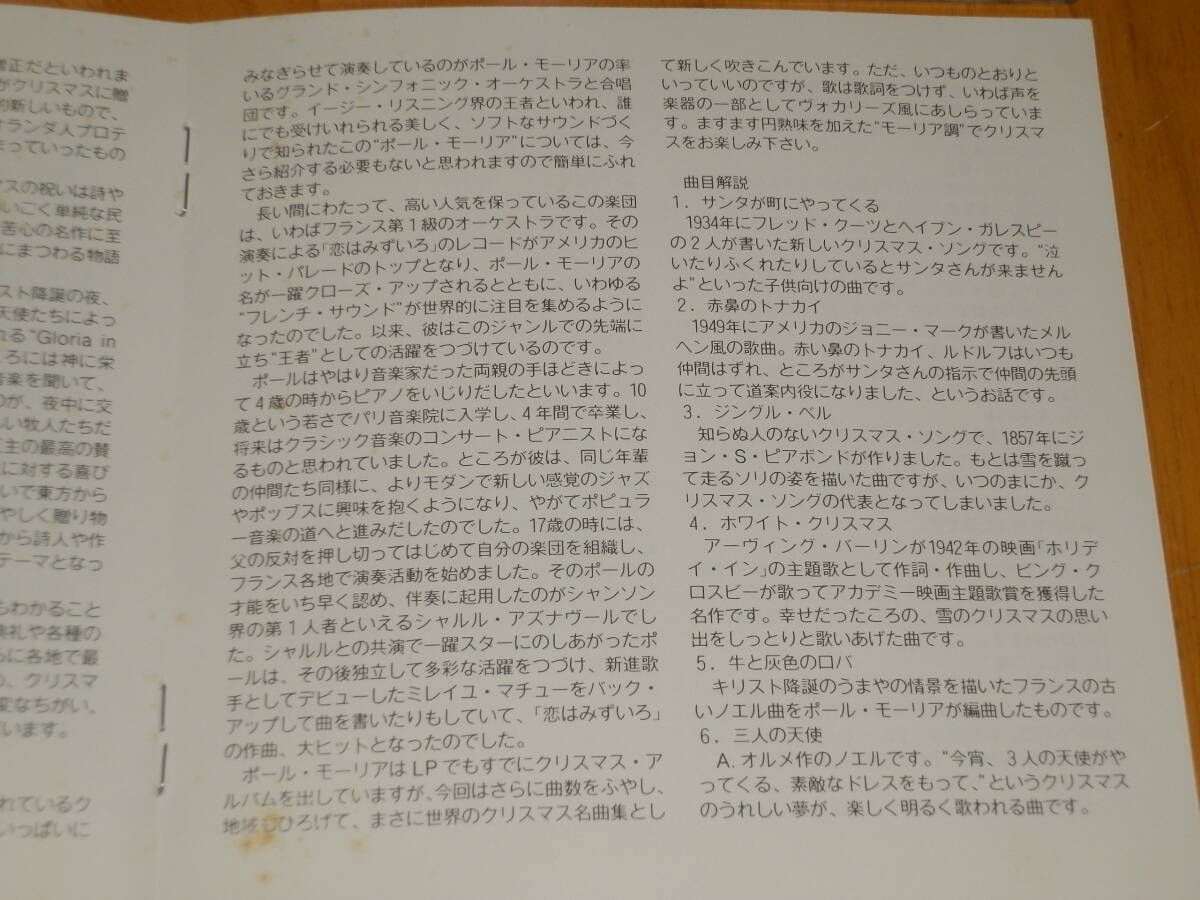 正だといわれま
がクリスマスに贈
的新しいもので、
オランダ人プロテ
まっていったもの
マスの祝いは詩や
いごく単純な民
苦心の名作に至
にまつわる物語
スト降誕の夜、
天使たちによっ
れる“Gloria in
ころには神に栄
音楽を聞いて、
のが、夜中に交
しい牧人たちだ
主の最高の賛
に対する喜び
いで東方から
やしく贈り物
から詩人や作
テーマとなっ
もわかること
典礼や各種の
らに各地で最
、クリスマ
変なちがい、
います。
れているク
いっぱいに
みなぎらせて演奏しているのがポール・モーリアの率
いるグランド・シンフォニック・オーケストラと合唱
団です。イージー・リスニング界の王者といわれ、誰
にでも受けいれられる美しく、ソフトなサウンドづく
りで知られたこの“ポール・モーリア”については、今
さら紹介する必要もないと思われますので簡単にふれ
ておきます。
長い間にわたって、高い人気を保っているこの楽団
は、いわばフランス第1級のオーケストラです。その
演奏による「恋はみずいろ」のレコードがアメリカのヒ
ット・パレードのトップとなり、ポール・モーリアの
名が一躍クローズ・アップされるとともに、いわゆる
“フレンチ・サウンド”が世界的に注目を集めるように
なったのでした。以来、彼はこのジャンルでの先端に
立ち“王者”としての活躍をつづけているのです。
ポールはやはり音楽家だった両親の手ほどきによっ
て4歳の時からピアノをいじりだしたといいます。10
歳という若さでパリ音楽院に入学し、4年間で卒業し、
将来はクラシック音楽のコンサート・ピアニストにな
るものと思われていました。ところが彼は、同じ年輩
の仲間たち同様に、よりモダンで新しい感覚のジャズ
やポップスに興味を抱くようになり、やがてポピュラ
ー音楽の道へと進みだしたのでした。17歳の時には、
父の反対を押し切ってはじめて自分の楽団を組織し、
フランス各地で演奏活動を始めました。そのポールの
才能をいち早く認め、伴奏に起用したのがシャンソン
界の第1人者といえるシャルル・アズナヴールでし
た。シャルルとの共演で一躍スターにのしあがったポ
ールは、その後独立して多彩な活躍をつづけ、新進歌
手としてデビューしたミレイユ・マチューをバック・
アップして曲を書いたりもしていて、「恋はみずいろ」
の作曲、大ヒットとなったのでした。
ポール・モーリアはLPでもすでにクリスマス・ア
ルバムを出していますが、今回はさらに曲数をふやし、
地域もひろげて、まさに世界のクリスマス名曲集とし
て新しく吹きこんでいます。ただ、いつものとおりと
いっていいのですが、歌は歌詞をつけず、いわば声を
楽器の一部としてヴォカリーズ風にあしらっていま
す。ますます円熟味を加えた“モーリア調”でクリスマ
スをお楽しみ下さい。
曲目解説
1．サンタが町にやってくる
1934年にフレッド・クーツとヘイブン・ガレスピー
の2人が書いた新しいクリスマス・ソングです。“泣
いたりふくれたりしているとサンタさんが来ません
よ”といった子供向けの曲です。
2．赤鼻のトナカイ
1949年にアメリカのジョニー・マークが書いたメル
ヘン風の歌曲。赤い鼻のトナカイ、ルドルフはいつも
仲間はずれ、ところがサンタさんの指示で仲間の先頭
に立って道案内役になりました、というお話です。
3．ジングル・ベル
知らぬ人のないクリスマス・ソングで、1857年にジ
ョン・S・ピアポンドが作りました。もとは雪を蹴っ
て走るソリの姿を描いた曲ですが、いつのまにか、ク
リスマス・ソングの代表となってしまいました。
4．ホワイト・クリスマス
アーヴィング・バーリンが1942年の映画「ホリデ
イ・イン」の主題歌として作詞・作曲し、ビング・ク
ロスビーが歌ってアカデミー映画主題歌賞を獲得した
名作です。幸せだったころの、雪のクリスマスの思い
出をしっとりと歌いあげた曲です。
5．牛と灰色のロバ
キリスト降誕のうまやの情景を描いたフランスの古
いノエル曲をポール・モーリアが編曲したものです。
6．三人の天使
A.オルメ作のノエルです。“今宵、3人の天使がや
ってくる、素敵なドレスをもって、”というクリスマス
のうれしい夢が、楽しく明るく歌われる曲です。